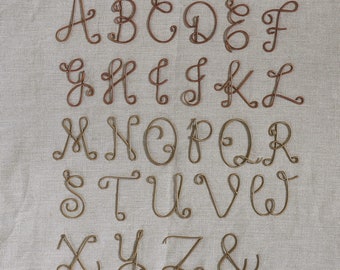 A B C D E F
G H I J K L
M N O P Q R
S T U V W
X Y Z &